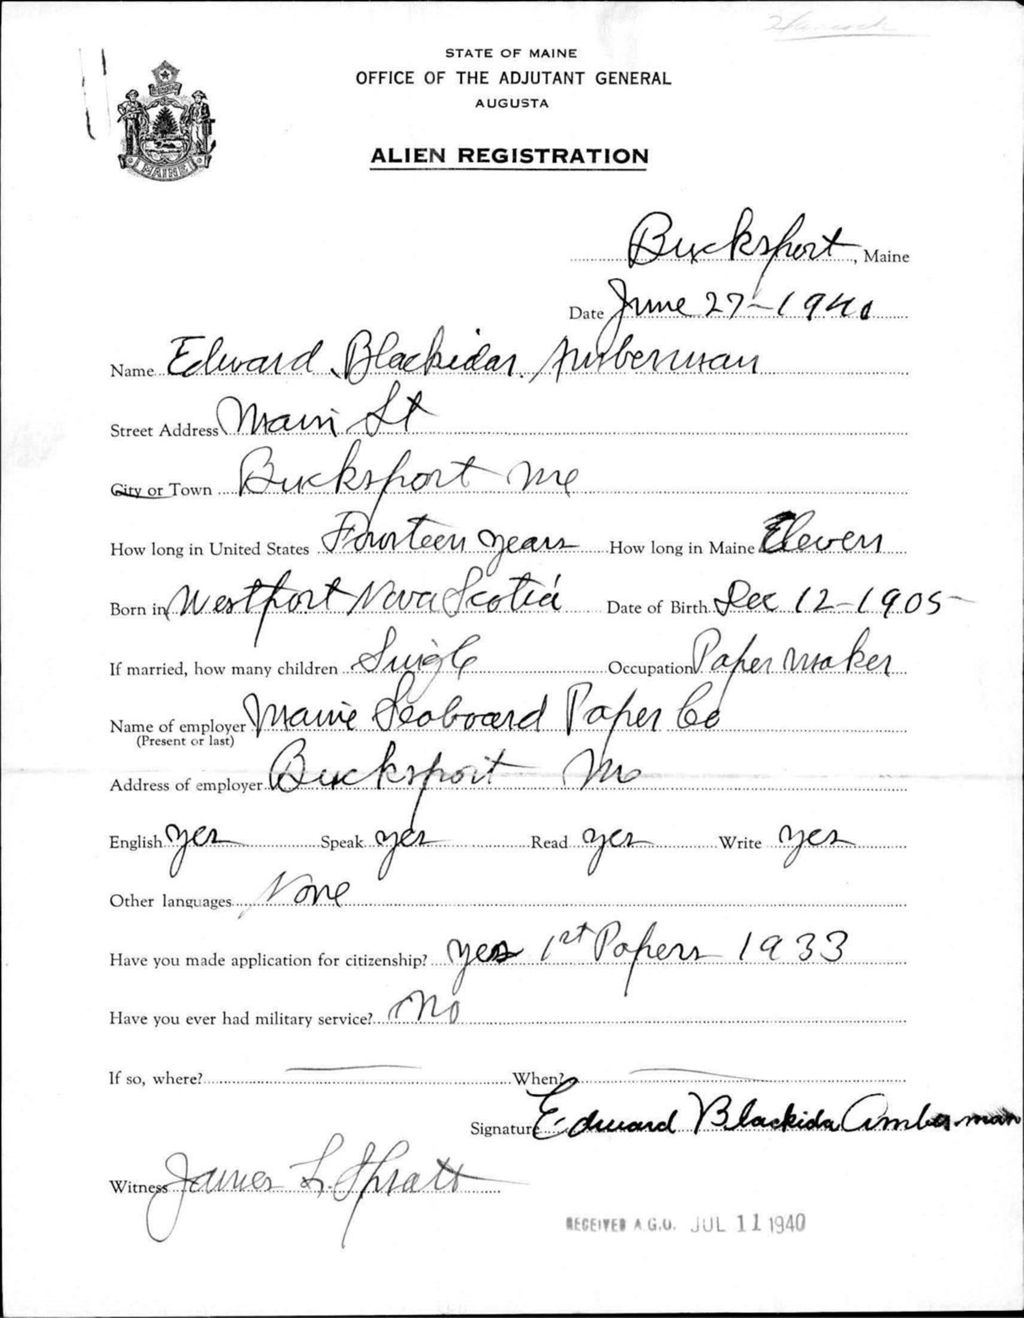 Hancock
STATE OF MAINE
OFFICE OF THE ADJUTANT GENERAL
AUGUSTA
ALIEN REGISTRATION
MAINE
Bucksport, Maine
Date June 27-1940
Name Edward Blackidar Amberman
Street Address Main St
City or Town Bucksport Me
How long in United States Fourteen years How long in Maine Eleven
Born in Westport Nova Scotia Date of Birth Dec 12-1905
If married, how many children Single Occupation Paper maker
Name of employer Maine Seaboard Paper Co
(Present or last)
Address of employer Bucksport Me
English yes Speak yes Read yes Write yes
Other languages None
Have you made application for citizenship? yes 1st Papers 1933
Have you ever had military service? No
If so, where? When?
Signature Edward Blackida Amberman
Witness James L. Spratt
RECEIVED A.G.O. JUL 11 1940